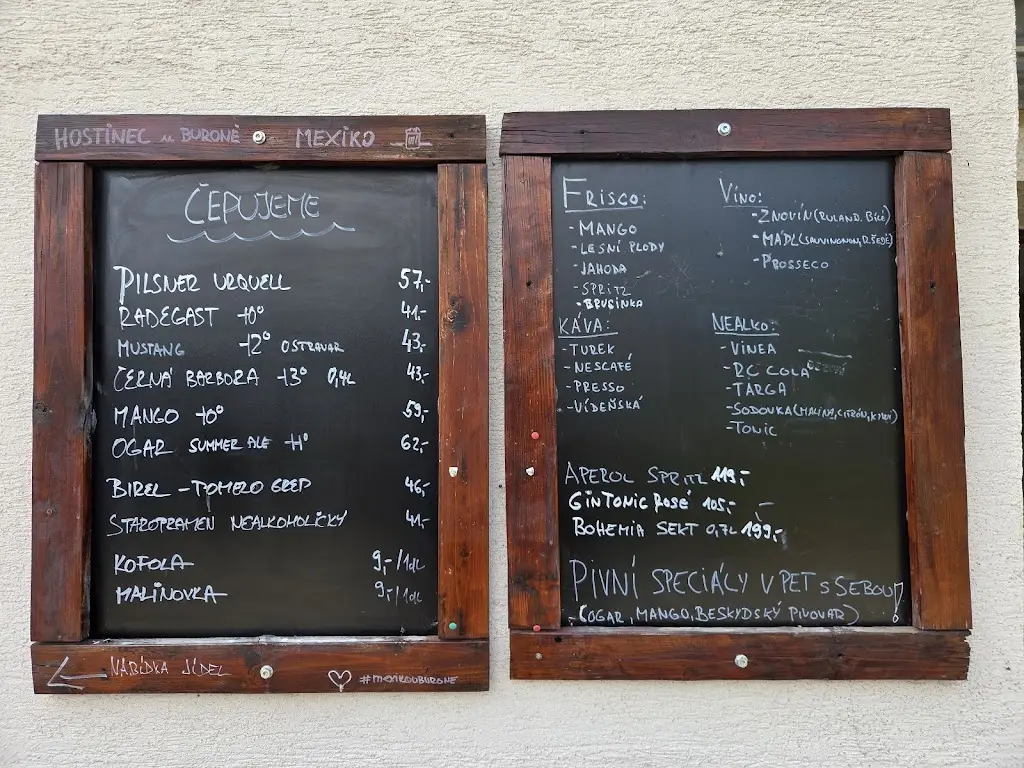 HOSTINEC u BURONĚ MEXIKO
ČEPUJEME
PILSNER URQUELL 57,-
RADEGAST 10° 41,-
MUSTANG 12° OSTRAVAR 43,-
ČERNÁ BARBORA 13° 0,4L 43,-
MANGO 10° 59,-
OGAR SUMMER ALE 11° 62,-
BIREL - POMELO GREP 46,-
STAROPRAMEN NEALKOHOLICKÝ 41,-
KOFOLA 9,-/1dL
MALINOVKA 9,-/1dL
NABÍDKA JÍDEL
#MEXIKOUBURONE
FRISCO:
- MANGO
- LESNÍ PLODY
- JAHODA
- SPRITZ
- BRUSINKA
KÁVA:
- TUREK
- NESCAFÉ
- PRESSO
- VÍDEŇSKÁ
VÍNO:
- ZNOVÍN (RULAND. BÍLÉ)
- MÁDL (SAUVINONON, R. ŠEDÉ)
- PROSSECO
NEALKO:
- VINEA
- RC COLA
- TARGA
- SODOVKA (MALINA, CITRÓN, KIWI)
- TONIC
APEROL SPRITZ 119,-
GINTONIC ROSÉ 105,-
BOHEMIA SEKT 0,7L 199,-
PIVNÍ SPECIÁLY V PET S SEBOU!
(OGAR, MANGO, BESKYDSKÝ PIVOVAR)